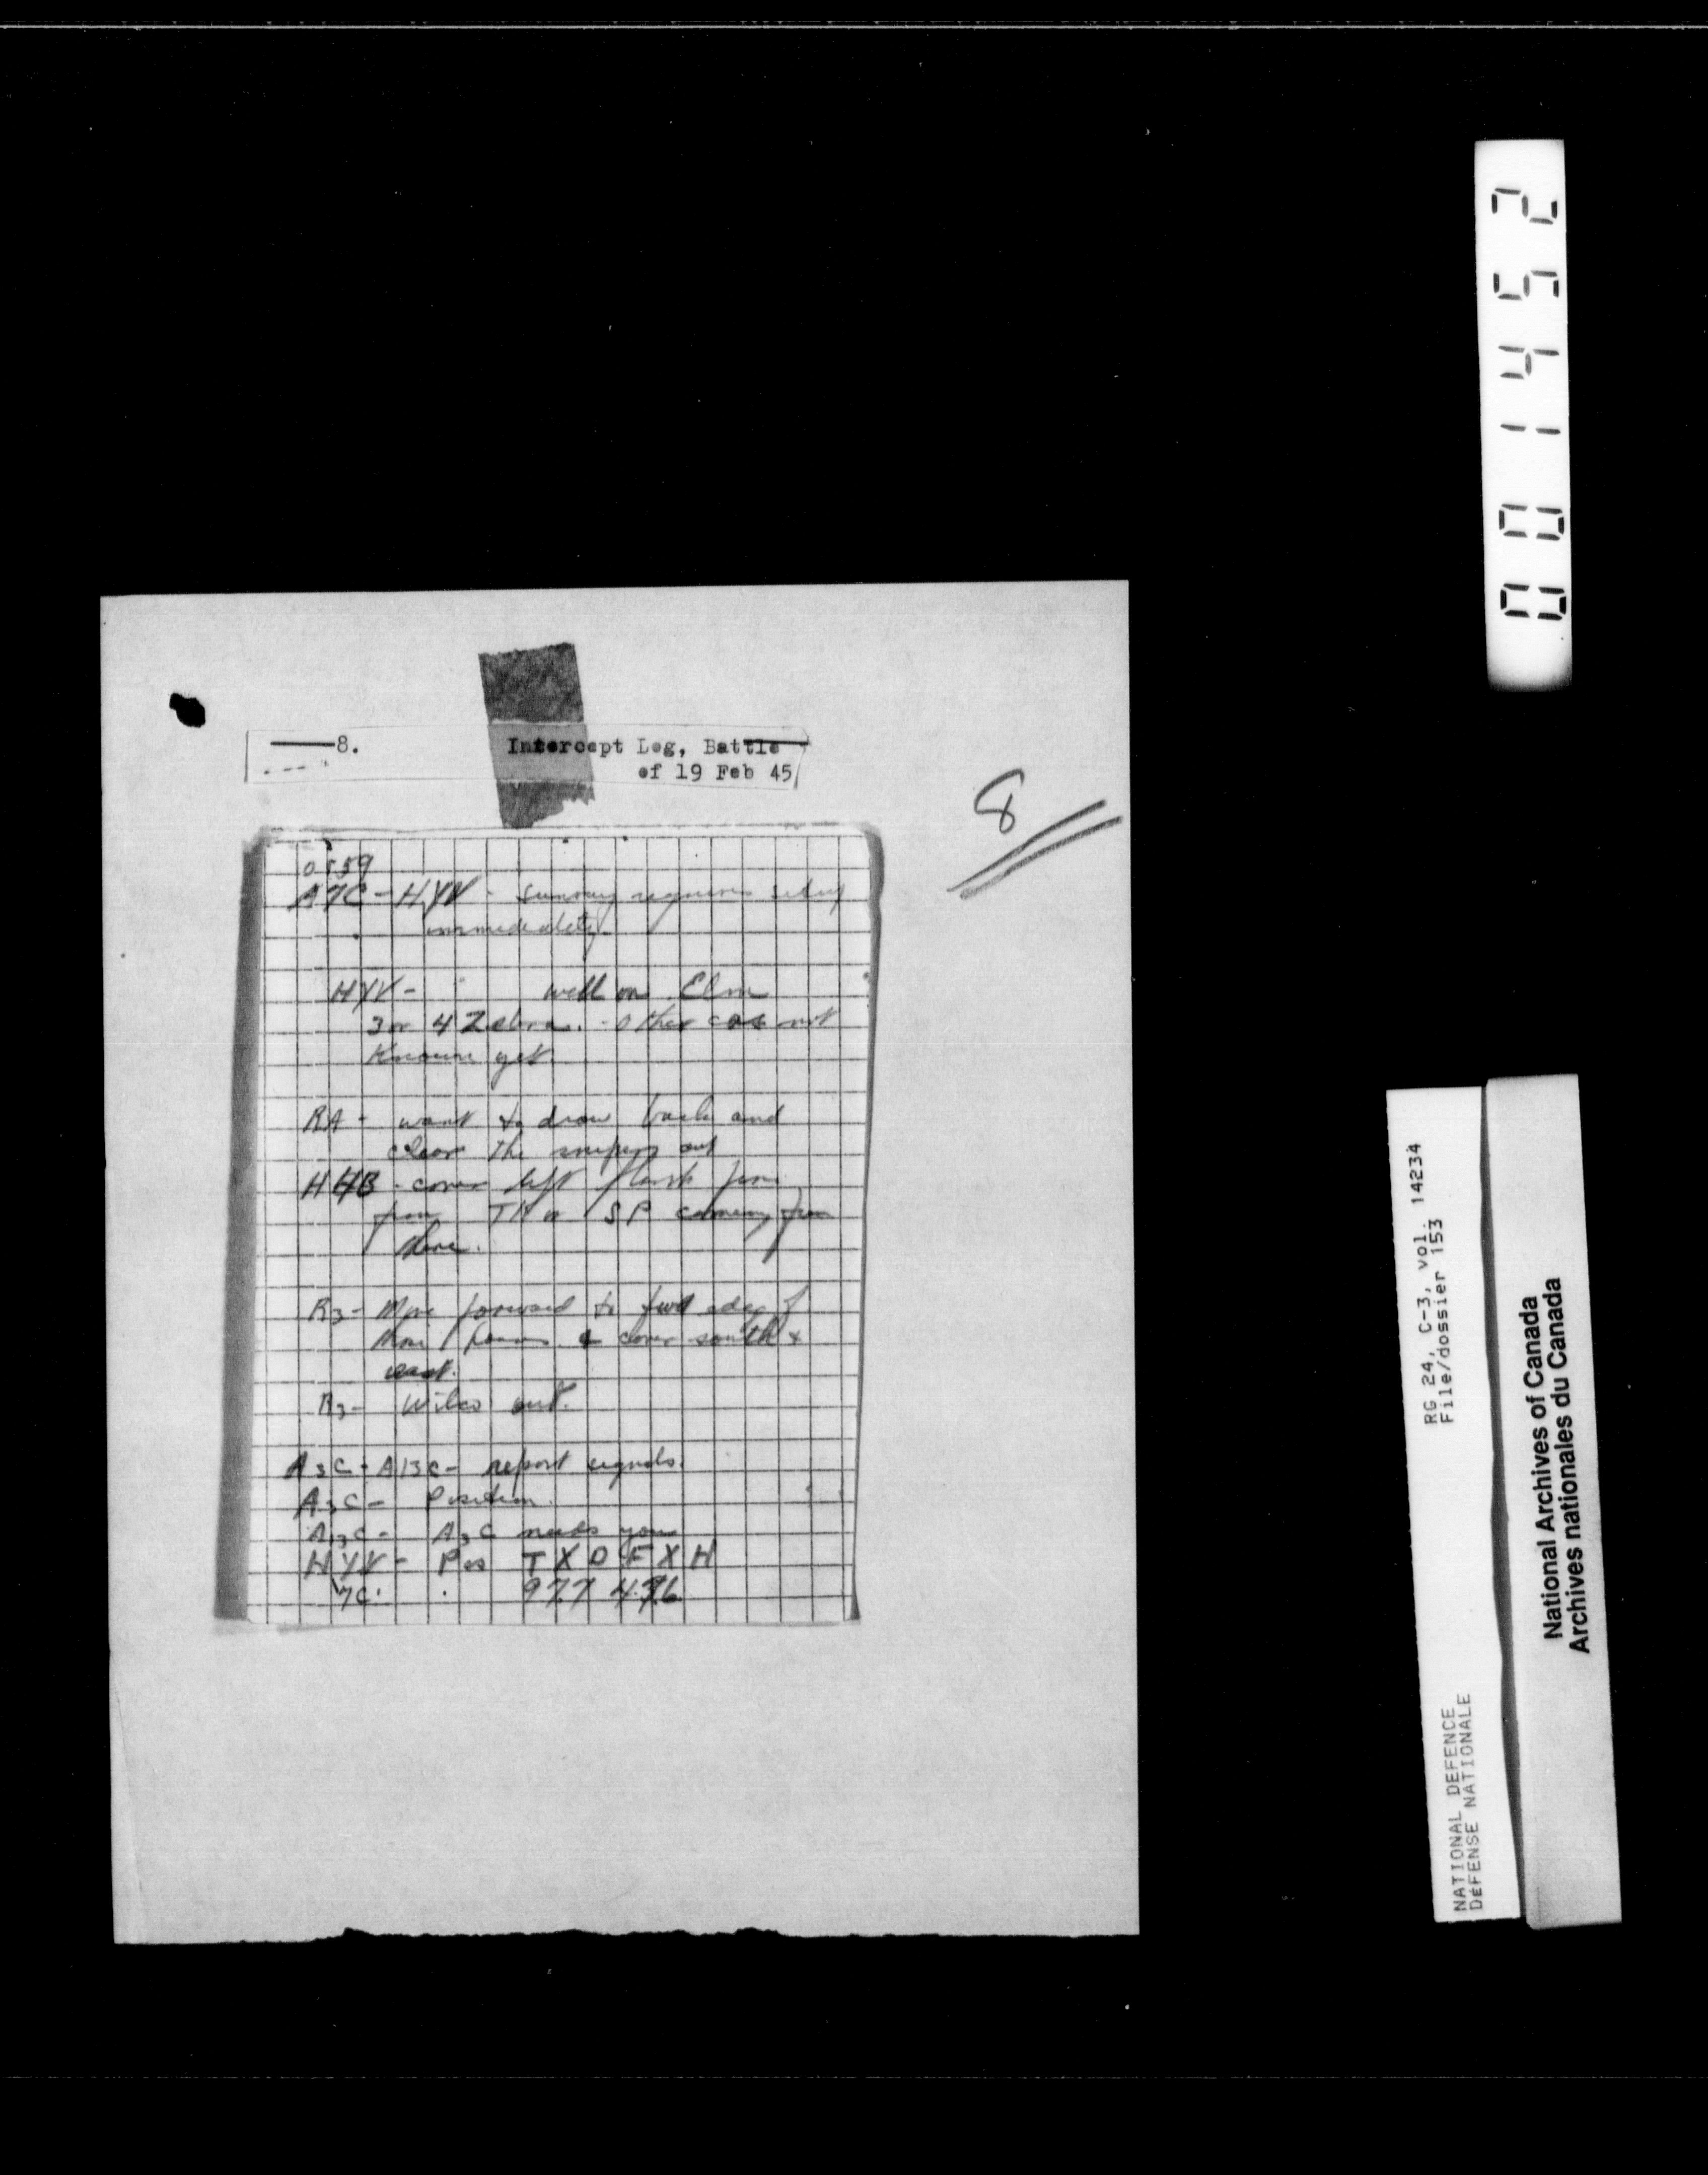 8. Intercept Log, Battle
of 19 Feb 45
8
0859
A7C - HYV - sunray requires
immediately.
HYV - well on Elm
3 or 4 Zebras. - other cas not
known yet.
RA - want to draw back and
clear the snipers out
HHB - cover left flank from
from TK or SP coming from
there.
R3 - Move forward to fwd edge of
& cover south &
east.
R3 - Wilco out.
A3C - A13C - report signals.
A3C - Position.
A13C - A3C needs you
HYV - Pos T X D F X H
7C: 977 476
001452
RG 24, C-3, vol. 14234
File/dossier 153
NATIONAL DEFENCE
DÉFENSE NATIONALE
National Archives of Canada
Archives nationales du Canada